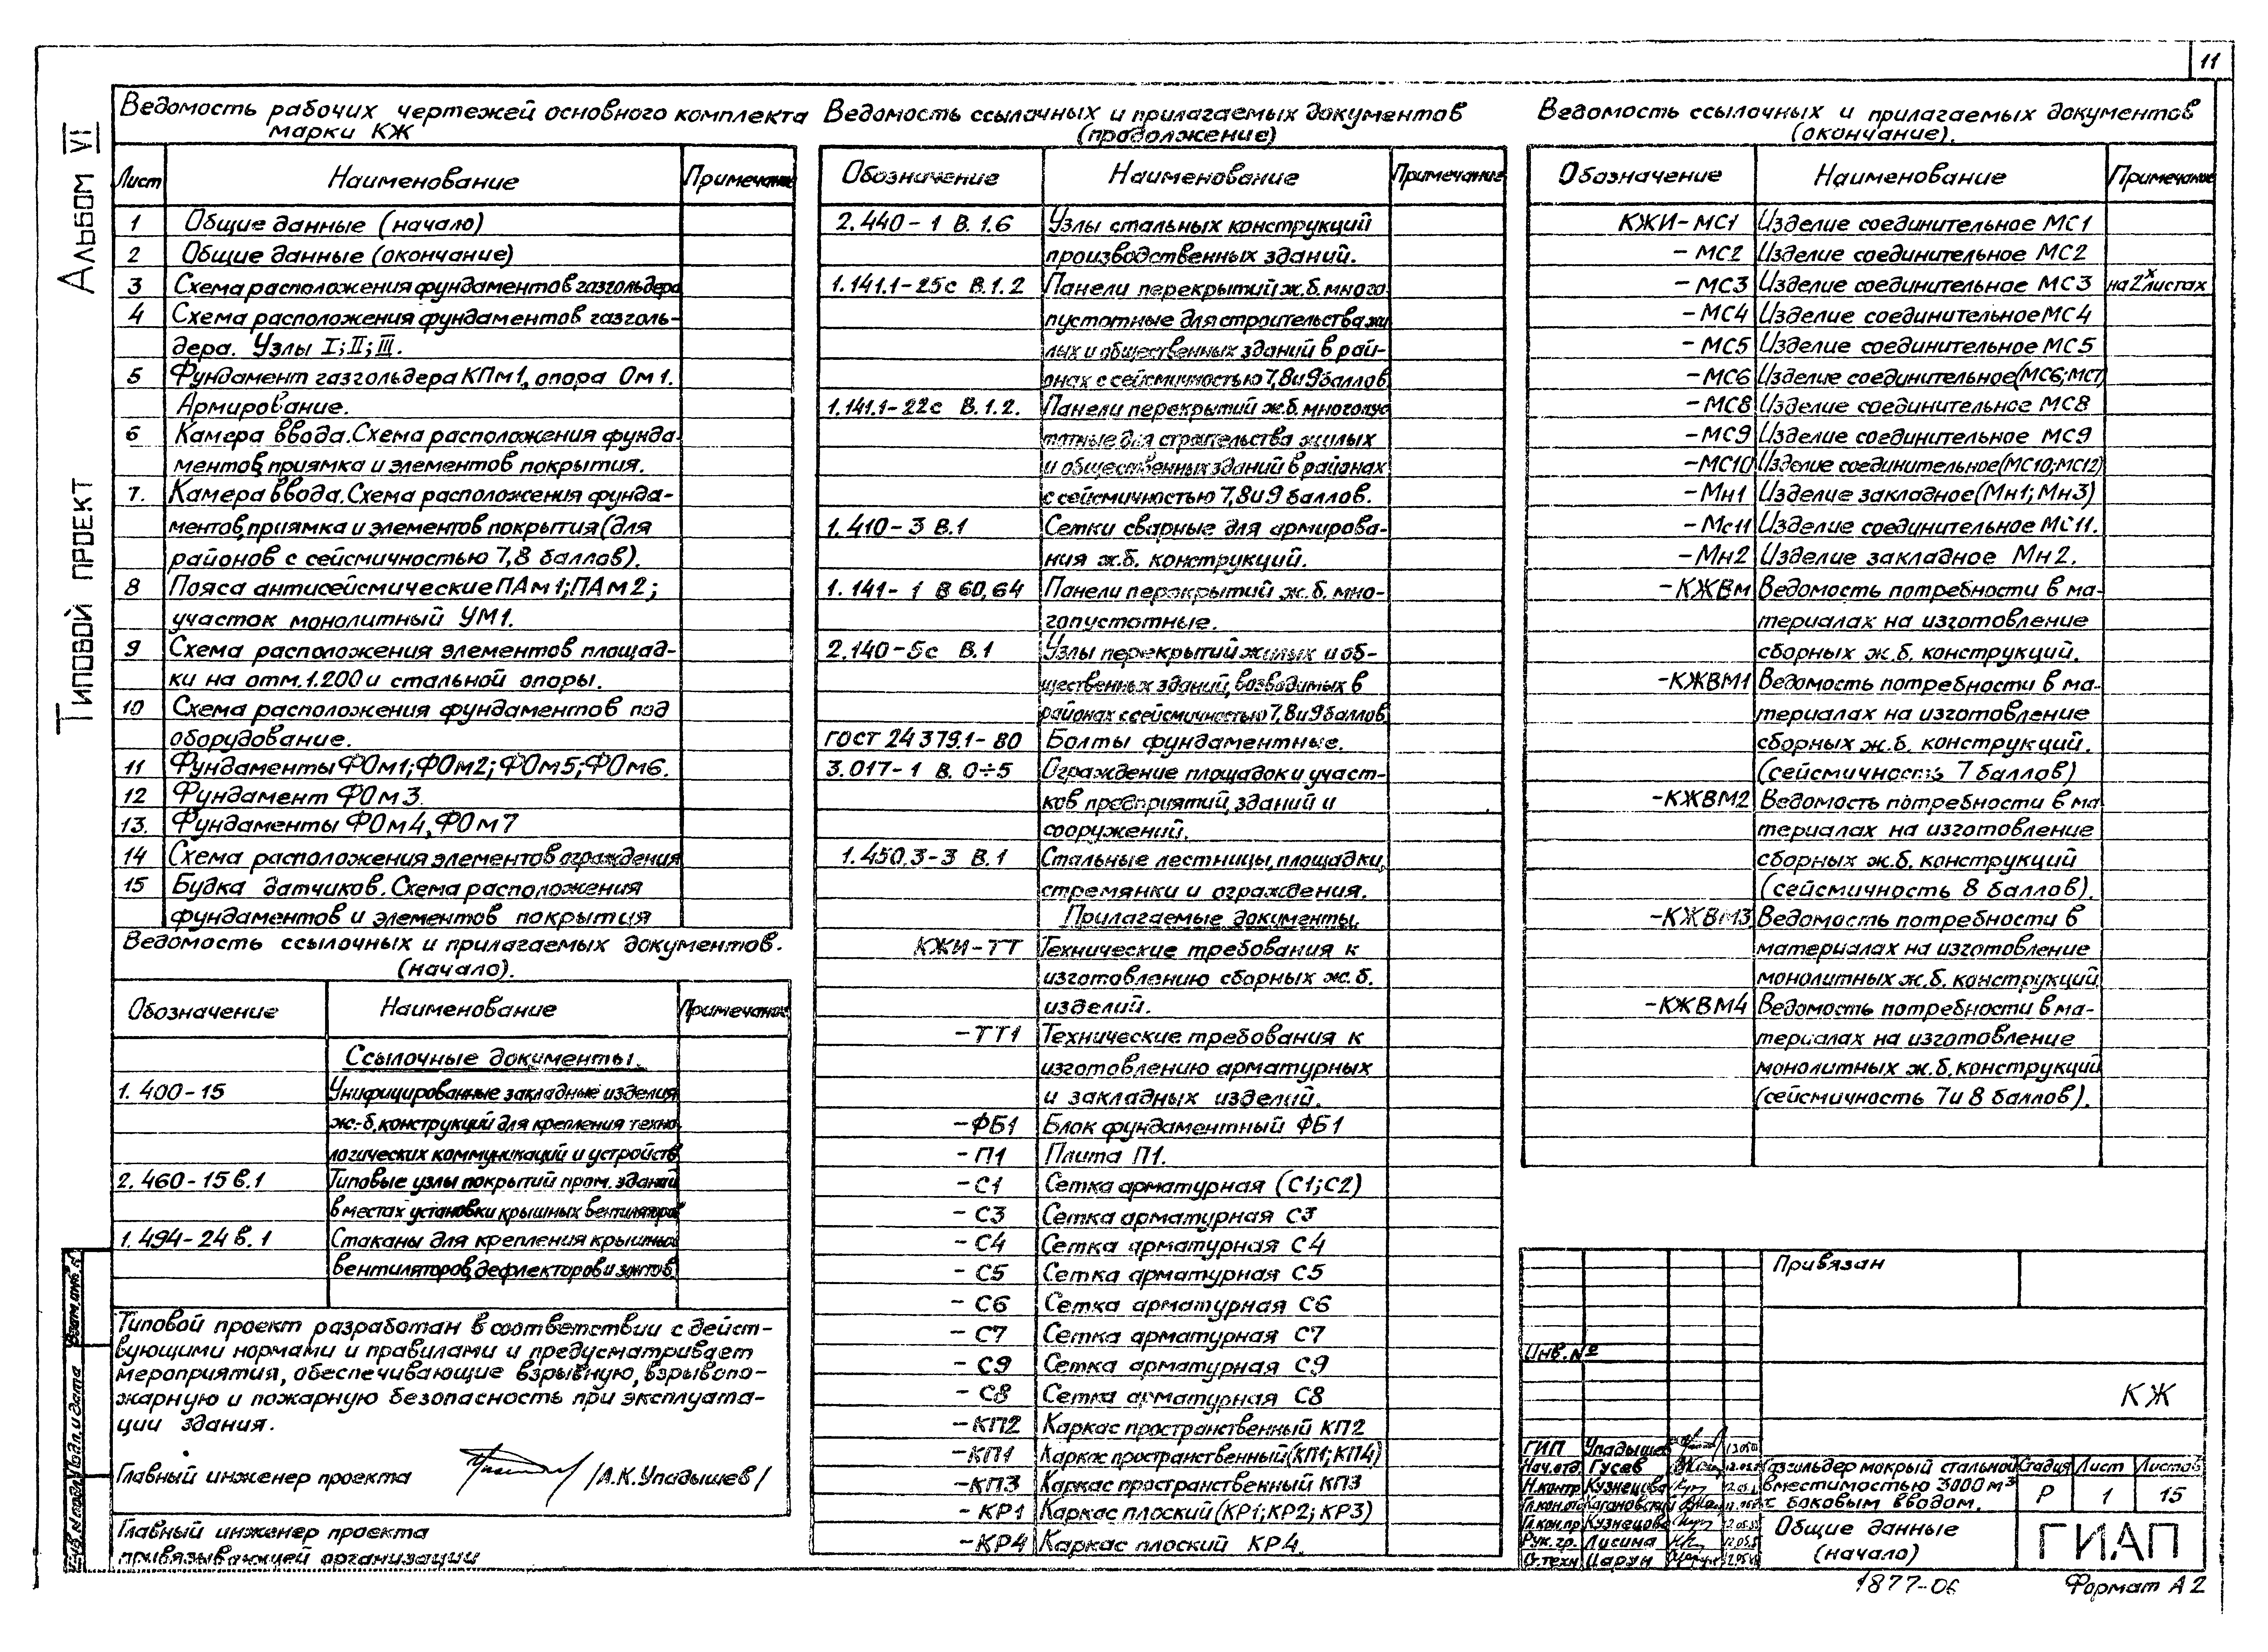 11
Альбом VI
Типовой проект
Ведомость рабочих чертежей основного комплекта
марки КЖ
Лист Наименование Примечание
1 Общие данные (начало)
2 Общие данные (окончание)
3 Схема расположения фундаментов газгольдера
4 Схема расположения фундаментов газголь-
дера. Узлы I; II; III.
5 Фундамент газгольдера КПм1, опора Ом1.
Армирование.
6 Камера ввода. Схема расположения фунда-
ментов, приямка и элементов покрытия.
7. Камера ввода. Схема расположения фунда-
ментов, приямка и элементов покрытия (для
районов с сейсмичностью 7,8 баллов).
8 Пояса антисейсмические ПАм1; ПАм2;
участок монолитный УМ1.
9 Схема расположения элементов площад-
ки на отм. 1.200 и стальной опоры.
10 Схема расположения фундаментов под
оборудование.
11 Фундаменты ФОм1; ФОм2; ФОм5; ФОм6.
12 Фундамент ФОм3.
13. Фундаменты ФОм4, ФОм7
14 Схема расположения элементов ограждения
15 Будка датчиков. Схема расположения
фундаментов и элементов покрытия
Ведомость ссылочных и прилагаемых документов.
(начало).
Обозначение Наименование Примечание
Ссылочные документы.
1.400-15 Унифицированные закладные изделия
ж.-б. конструкций для крепления техно
логических коммуникаций и устройств
2.460-15 в.1 Типовые узлы покрытий пром. зданий
в местах установки крышных вентиляторов
1.494-24 в.1 Стаканы для крепления крышных
вентиляторов, дефлекторов и зонтов.
Типовой проект разработан в соответствии с дейст-
вующими нормами и правилами и предусматривает
мероприятия, обеспечивающие взрывную, взрывопо-
жарную и пожарную безопасность при эксплуата-
ции здания.
Главный инженер проекта /А.К.Упадышев/
Главный инженер проекта
привязывающей организации
Ведомость ссылочных и прилагаемых документов
(продолжение)
Обозначение Наименование Примечание
2.440-1 В.1.6 Узлы стальных конструкций
производственных зданий.
1.141.1-25с В.1.2 Панели перекрытий ж.б. много
пустотные для строительства жи
лых и общественных зданий в рай-
онах с сейсмичностью 7,8 и 9 баллов
1.141.1-22с В.1.2. Панели перекрытий ж.б. многопус
тотные для строительства жилых
и общественных зданий в районах
с сейсмичностью 7,8 и 9 баллов.
1.410-3 В.1 Сетки сварные для армирова-
ния ж.б. конструкций.
1.141-1 В 60,64 Панели перекрытий ж.б. мно-
гопустотные.
2.140-5с В.1 Узлы перекрытий жилых и об-
щественных зданий, возводимых в
районах с сейсмичностью 7,8 и 9 баллов
ГОСТ 24379.1-80 Болты фундаментные.
3.017-1 В. 0÷5 Ограждение площадок и участ-
ков предприятий, зданий и
сооружений.
1.450.3-3 В.1 Стальные лестницы, площадки,
стремянки и ограждения.
Прилагаемые документы.
КЖИ-ТТ Технические требования к
изготовлению сборных ж.б.
изделий.
-ТТ1 Технические требования к
изготовлению арматурных
и закладных изделий.
-ФБ1 Блок фундаментный ФБ1
-П1 Плита П1.
-С1 Сетка арматурная (С1; С2)
-С3 Сетка арматурная С3
-С4 Сетка арматурная С4
-С5 Сетка арматурная С5
-С6 Сетка арматурная С6
-С7 Сетка арматурная С7
-С9 Сетка арматурная С9
-С8 Сетка арматурная С8
-КП2 Каркас пространственный КП2
-КП1 Каркас пространственный (КП1; КП4)
-КП3 Каркас пространственный КП3
-КР1 Каркас плоский (КР1; КР2; КР3)
-КР4 Каркас плоский КР4.
Ведомость ссылочных и прилагаемых документов
(окончание).
Обозначение Наименование Примечание
КЖИ-МС1 Изделие соединительное МС1
-МС2 Изделие соединительное МС2
-МС3 Изделие соединительное МС3 на 2х листах
-МС4 Изделие соединительное МС4
-МС5 Изделие соединительное МС5
-МС6 Изделие соединительное (МС6; МС7)
-МС8 Изделие соединительное МС8
-МС9 Изделие соединительное МС9
-МС10 Изделие соединительное (МС10; МС12)
-Мн1 Изделие закладное (Мн1; Мн3)
-Мс11 Изделие соединительное МС11.
-Мн2 Изделие закладное Мн2.
-КЖВм Ведомость потребности в ма-
териалах на изготовление
сборных ж.б. конструкций.
-КЖВМ1 Ведомость потребности в ма-
териалах на изготовление
сборных ж.б. конструкций.
(сейсмичность 7 баллов)
-КЖВМ2 Ведомость потребности в ма
териалах на изготовление
сборных ж.б. конструкций
(сейсмичность 8 баллов).
-КЖВМ3 Ведомость потребности в
материалах на изготовление
монолитных ж.б. конструкций
-КЖВМ4 Ведомость потребности в ма-
териалах на изготовление
монолитных ж.б. конструкций
(сейсмичность 7 и 8 баллов).
Привязан
Инв.№
КЖ
ГИП Упадышев
Нач.отд. Гусев
Н.контр Кузнецова
Гл.кон.отд Кагановский
Гл.кон.пр Кузнецова
Рук.гр. Лисина
Ст.техн Царун
Газгольдер мокрый стальной
вместимостью 3000 м³
с боковым вводом.
Стадия Лист Листов
Р 1 15
Общие данные
(начало)
ГИАП
1877-06
Формат А2
Взам.инв.№
Подп. и дата
Инв.№ подл.